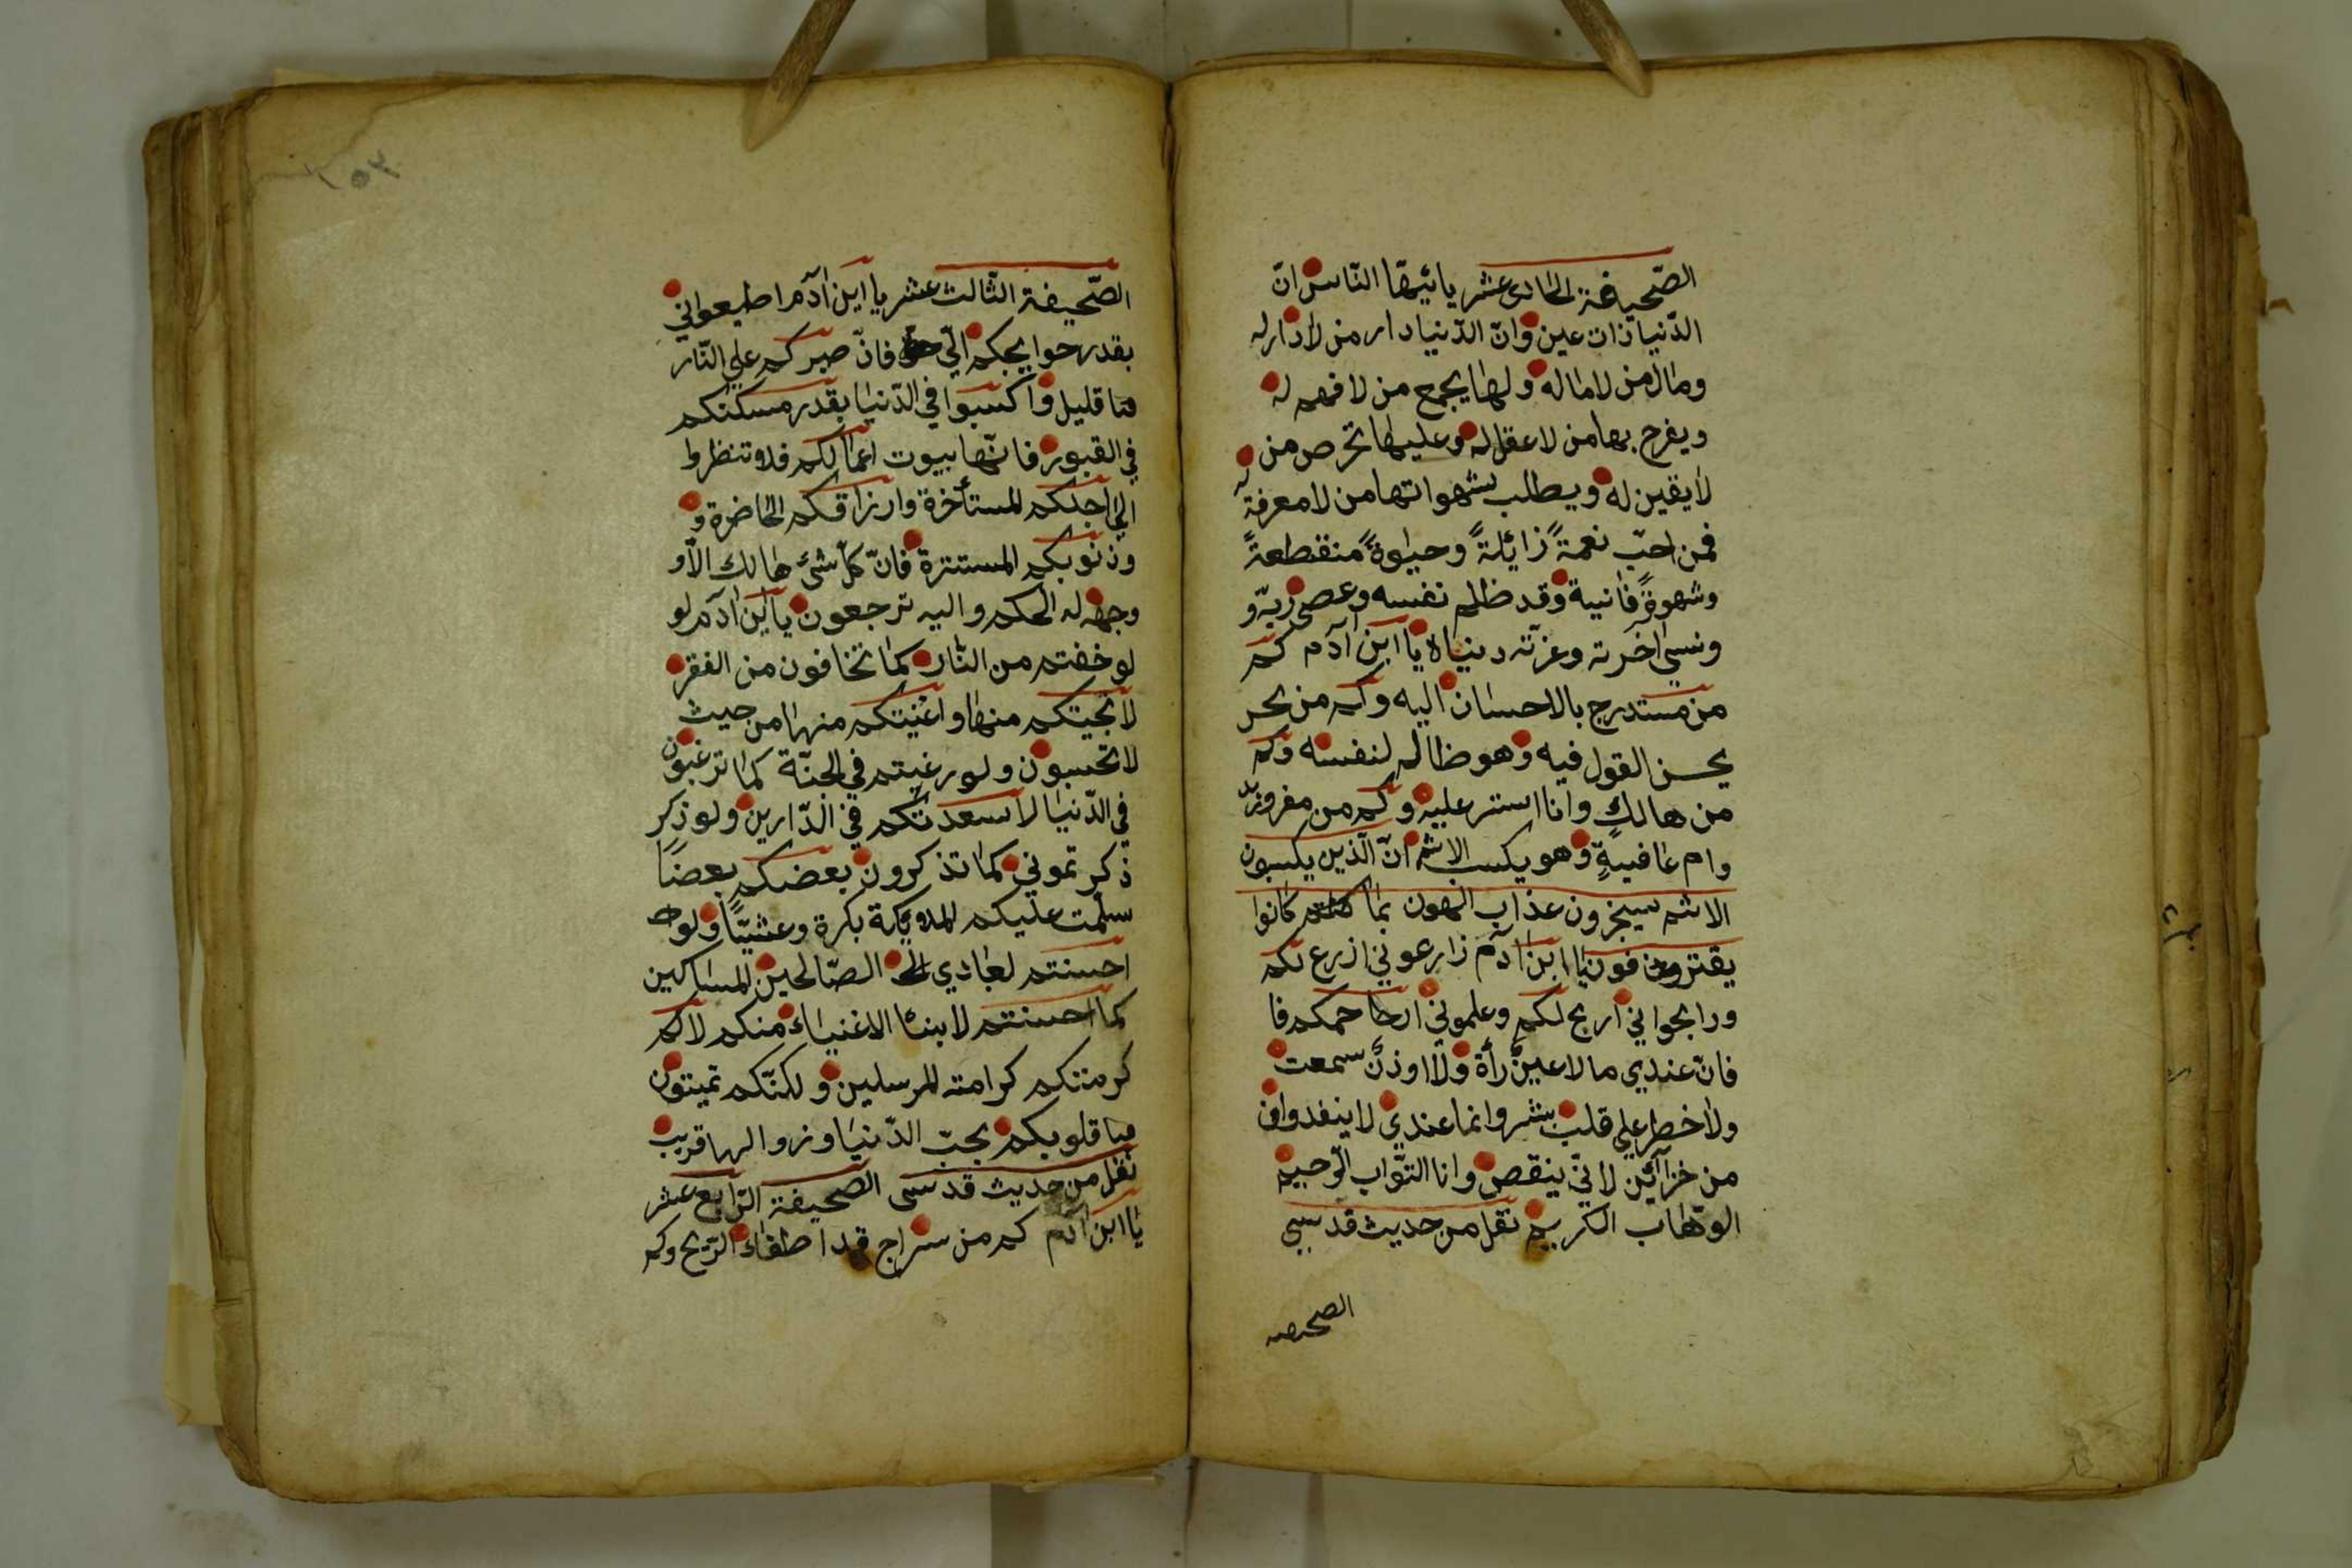 الصّحيفة الحادى عشر يائيّها النّاس انّ
الدّنيا ذات عين وانّ الدّنيا دار من لا دار له
ومال من لا ماله ولها يجمع من لا فهم له
ويفرح بها من لا عقل له وعليها تحرص من
لا يقين له ويطلب بشهواتها من لا معرفة له
فمن احبّ نعمةً زائلةً وحيٰوةً منقطعةً
وشهوةً فانية وقد ظلم نفسه وعصى ربّه و
ونسى اخرته وغرّته دنياه يا ابن آدم كم
من مستدرج بالاحسان اليه وكم من يحس
يحسن القول فيه وهو ظالم لنفسه وكم
من هالك وانا استر عليه وكم من
وام عافيةٍ وهو يكسب الاثم انّ الّذين يكسبون
الاثم سيجزون عذاب الهون بما كانوا
يقترفون يا ابن ادم زارعوني ازرع لكم
ورابحواني اربح لكم وعلموني ارحمكم فا
فانّ عندي ما لا عينٌ رأة ولا اوذنٌ سمعت
ولا خطر على قلب بشر وانما عندي لا ينفد وان
من خزآئين لا نيّ ينقص وانا التوّاب الرّحيم
الوهّاب الكريم نقل من حديث قدسى
الصحيفه
٢٥٢
الصّحيفة الثّالث عشر يا ابن ادم اطيعواني
بقدر حوايجكم اليّ فانّ صبركم على النّار
منا قليل واكسبوا في الدّنيا بقدر مسكنكم
في القبور فانّها بيوت اعمالكم فلا تنظروا
الي اجلكم المستأخرة وارزاقكم الحاضرة و
وذنوبكم المستترة فانّ كلّ شئ هالك الاّ و
وجهه له الحكم واليه ترجعون يا ابن ادم لو
لو خفتم من النّار كما تخافون من الفقر
لانجيتكم منها واغنيتكم منها من حيث
لا تحسبون ولو رغبتم في الجنّة كما ترغبون
في الدّنيا لاسعدتكم في الدّارين ولو ذكر
ذكر تموني كما تذكرون بعضكم بعضًا
سلّمت عليكم الملايكة بكرة وعشيًّا ولو
احسنتم لعبادي الصّالحين المساكين
كما احسنتم لابنئا الاغنياء منكم لاكم
كرمتكم كرامته المرسلين ولكنّكم تميتون
قلوبكم بحبّ الدّنيا وزوالها قريب
نقل من حديث قدسى الصّحيفة الرّابع عشر
يا ابن ادم كم من سراج قد اطفاء الرّيح وكم